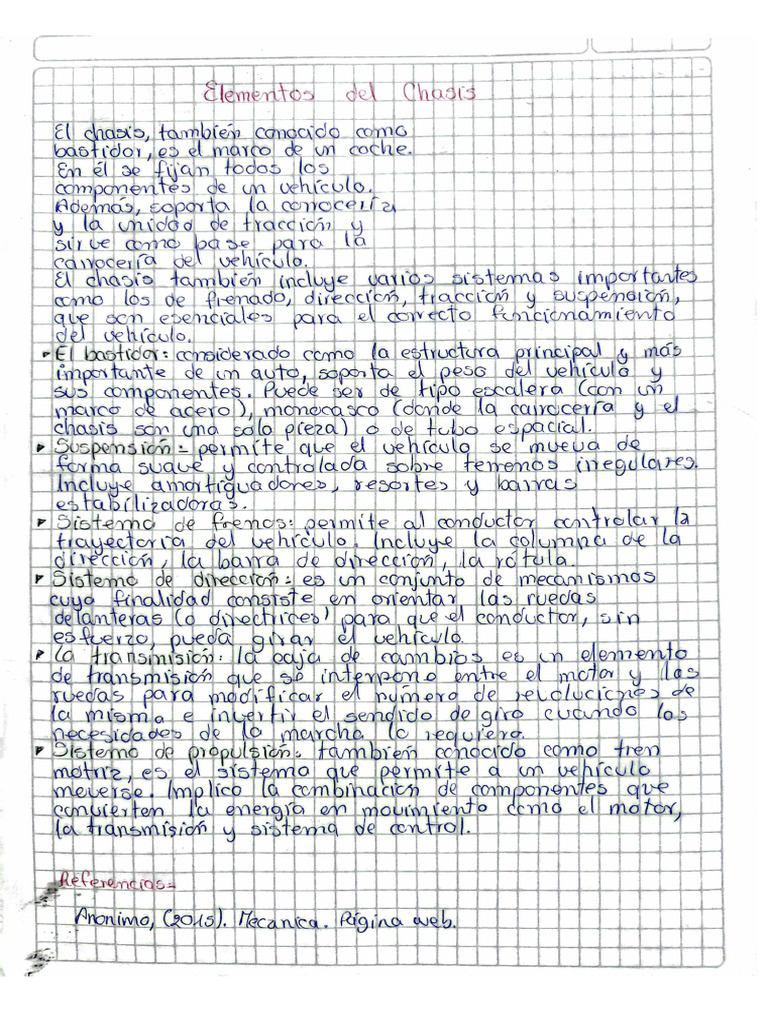 Elementos del Chasis
El chasis, también conocido como
bastidor, es el marco de un coche.
En él se fijan todos los
componentes de un vehículo.
Además, soporta la carrocería
y la unidad de tracción y
sirve como base para la
carrocería del vehículo.
El chasis también incluye varios sistemas importantes
como los de frenado, dirección, tracción y suspensión,
que son esenciales para el correcto funcionamiento
del vehículo.
El bastidor: considerado como la estructura principal y más
importante de un auto, soporta el peso del vehículo y
sus componentes. Puede ser de tipo escalera (con un
marco de acero), monocasco (donde la carrocería y el
chasis son una sola pieza) o de tubo espacial.
Suspensión = permite que el vehículo se mueva de
forma suave y controlada sobre terrenos irregulares.
Incluye amortiguadores, resortes y barras
estabilizadoras.
Sistema de frenos: permite al conductor controlar la
trayectoria del vehículo. Incluye la columna de la
dirección, la barra de dirección, la rótula.
Sistema de dirección: es un conjunto de mecanismos
cuya finalidad consiste en orientar las ruedas
delanteras (o directrices) para que el conductor, sin
esfuerzo, pueda girar el vehículo.
La transmisión: la caja de cambios es un elemento
de transmisión que se interpone entre el motor y las
ruedas para modificar el número de revoluciones de
la misma e invertir el sendido de giro cuando las
necesidades de la marcha lo requiera.
Sistema de propulsión: también conocido como tren
motriz, es el sistema que permite a un vehículo
moverse. Implica la combinación de componentes que
convierten la energía en movimiento como el motor,
la transmisión y sistema de control.
Referencias=
Anonimo, (2015). Mecanica. Página web.